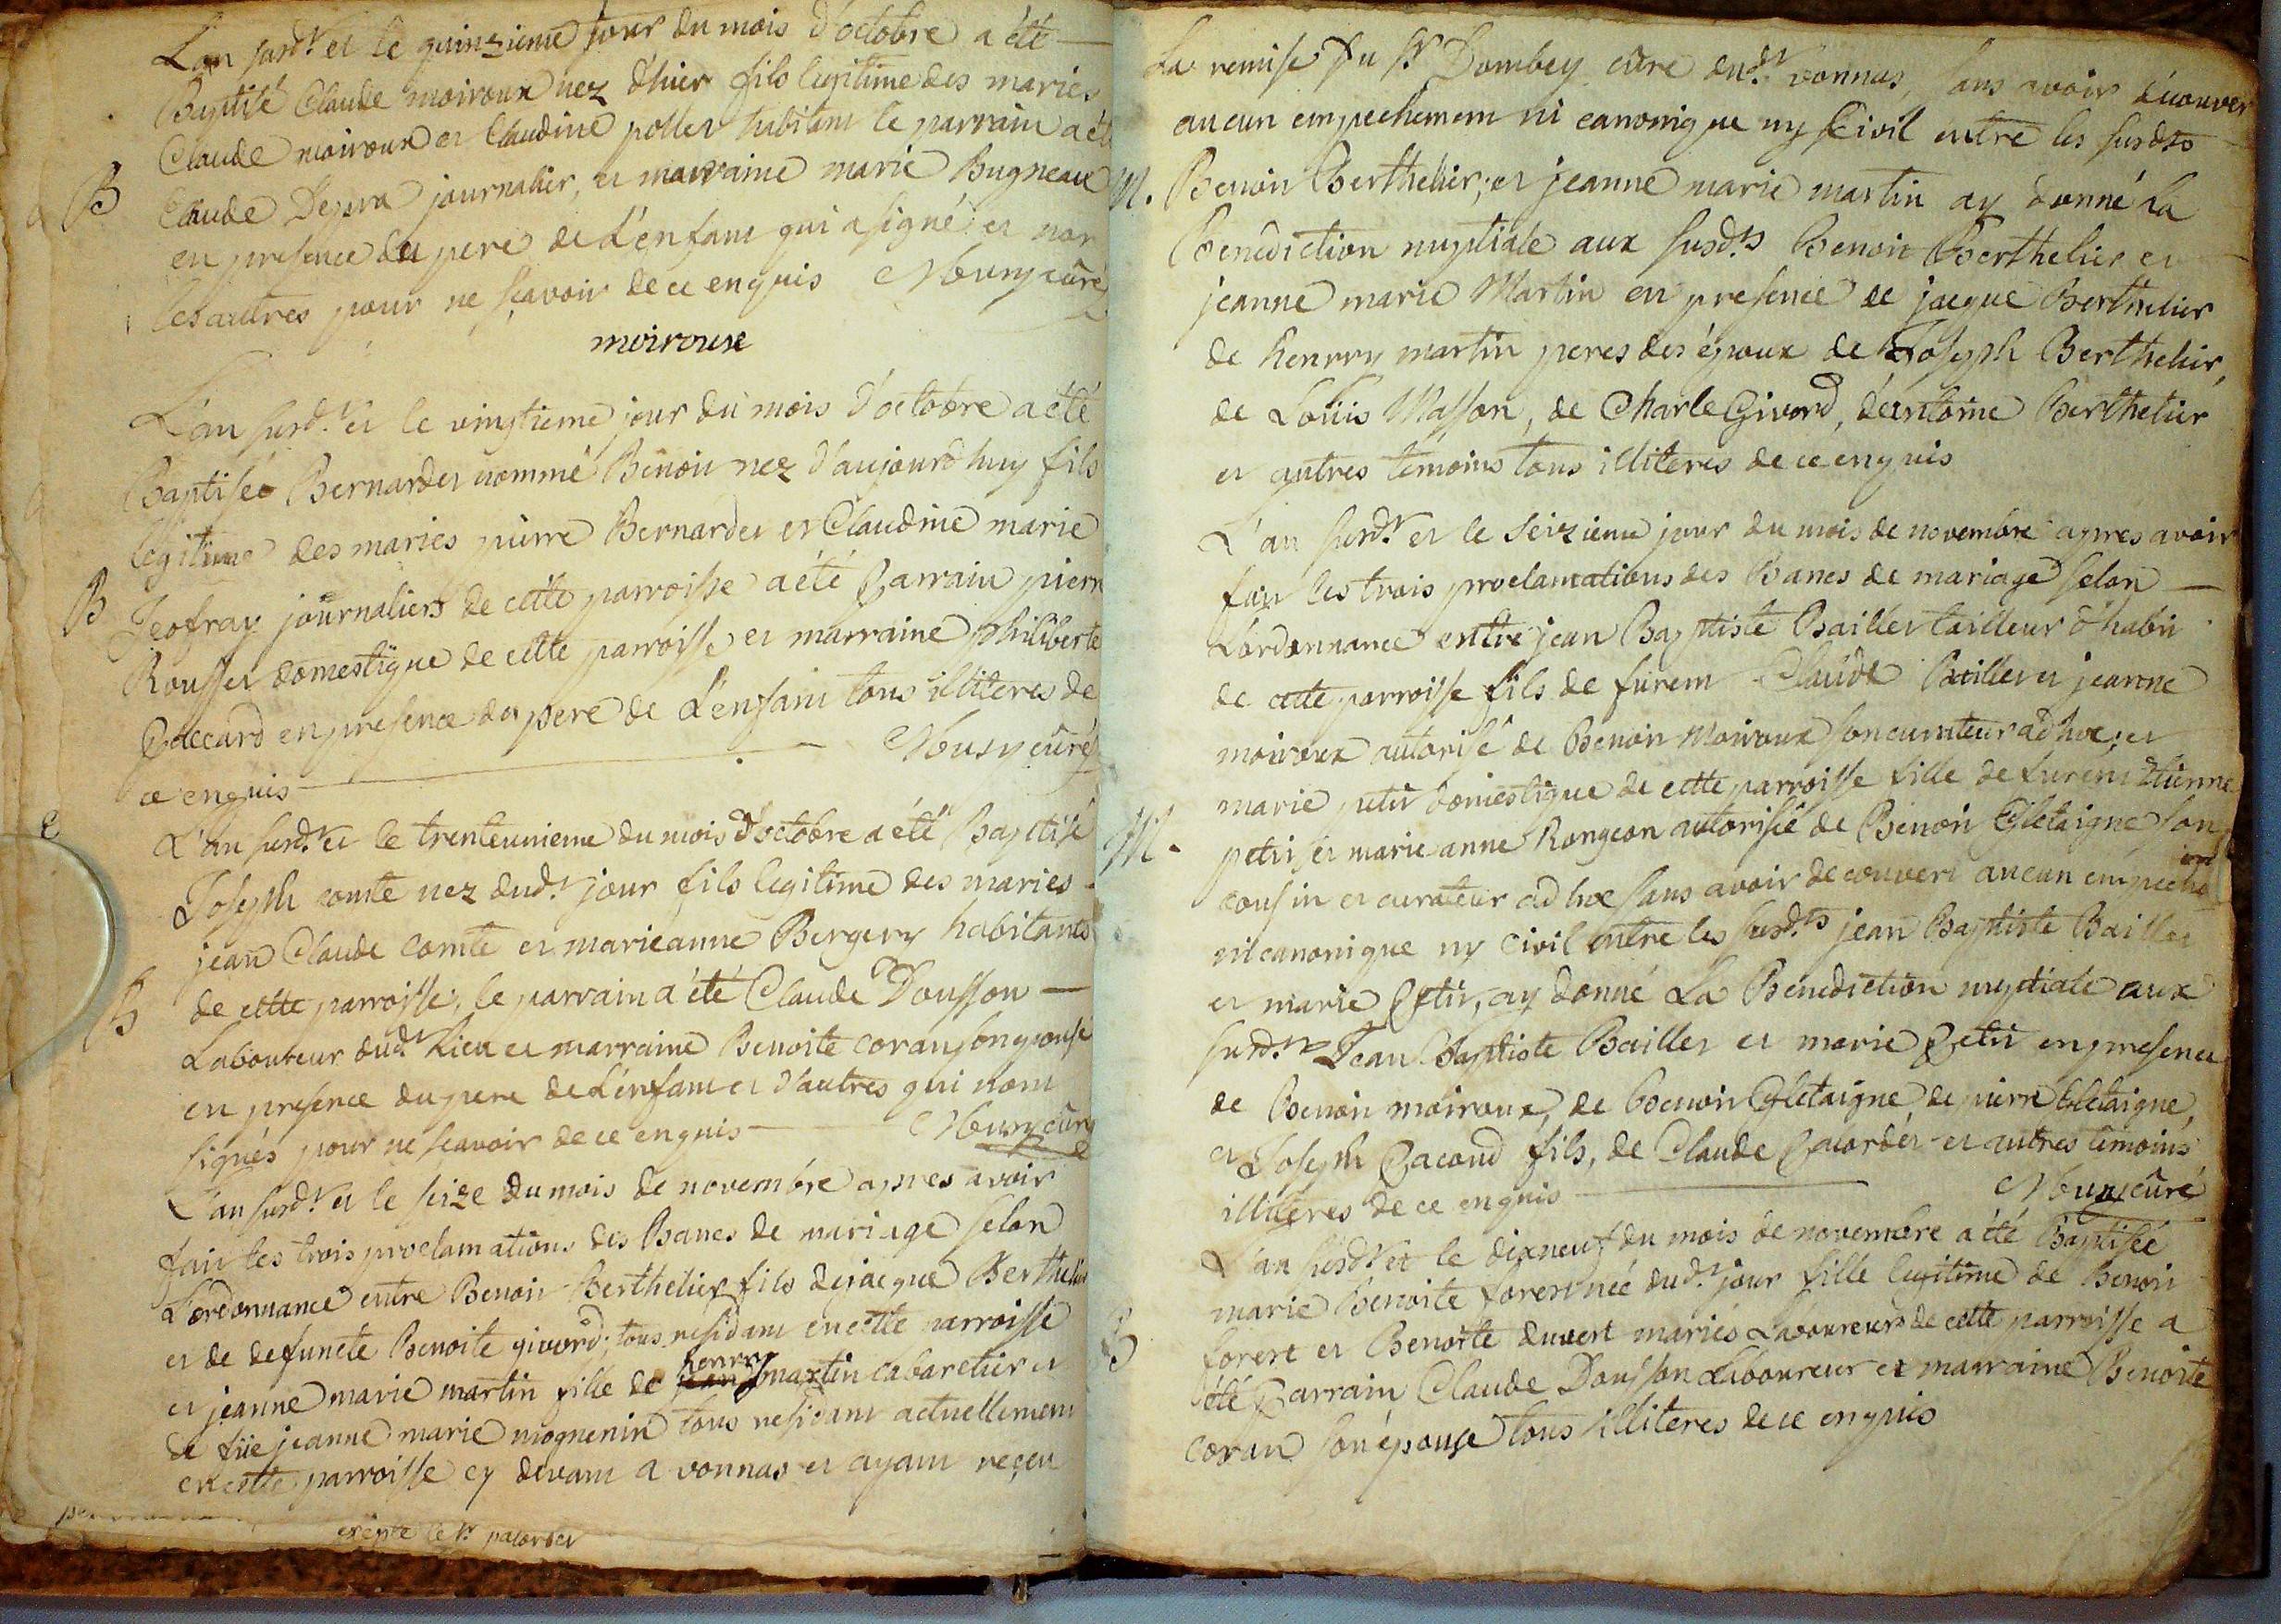 L'an susdt et le quinzieme jour du mois d'octobre a été
Baptisé Claude moiroux nez d'hier fils legitime des mariés
Claude moiroux et Claudine pollet habitant le parrain a été
B
Claude Depra journalier, et marraine marie Bugneau
en presence du pere de L'enfant qui a signé et non
les autres pour ne sçavoir de ce enquis curé
moiroux
L'an susdt et le vingtieme jour du mois d'octobre a été
Baptisé Bernardet nommé Benoit nez d'aujourd huy fils
legitime des mariés pierre Bernardet et Claudine marie
B
Jeofray journaliers de cette parroisse a été Parrain pierre
Rousset domestique de cette parroisse et marraine philiberte
Paccard en presence du pere de L'enfant tous illiteres de
ce enquis curé
L'an susdt et le trenteunieme du mois d'octobre a été Baptisé
Joseph comte nez dudt jour fils legitime des mariés
jean Claude comte et marieanne Bergery habitants
B
de cette parroisse, le parrain a été Claude Dousson
Laboureur dudt Lieu et marraine Benoite coran son epouse
en presence du pere de L'enfant et d'autres qui n'ont
signés pour ne sçavoir de ce enquis curé
L'an susdt et le seize du mois de novembre apres avoir
fait les trois proclamations des Bancs de mariage selon
L'ordonnance entre Benoit Berthelier fils de jacque Berthelier
et de defuncte Benoite givord, tous residant en cette parroisse
et jeanne marie martin fille de henrry martin cabaretier et
de füe jeanne marie mognenin tous residant actuellement
en cette parroisse cy devant a vonnas et ayant reçeu
exepté le sr pacordet
La remise du sr Dombey cûre dudt vonnas, sans avoir découvert
aucun empechement ni canonique ny Civil entre les susdts
M.
Benoit Berthelier, et jeanne marie martin ay donné La
Benediction nuptiale aux susdts Benoit Berthelier et
jeanne marie Martin en presence de jacque Berthelier
de henrry martin peres des époux de Joseph Berthelier,
de Loüis Masson, de Charle Givord, d'éantoine Berthelier
et autres temoins tous illiteres de ce enquis
L'an susdt et le seizieme jour du mois de novembre apres avoir
fait les trois proclamations des Bancs de mariage selon
L'ordonnance entre jean Baptiste Baillet tailleur d'habit
de cette parroisse fils de furent Claude Baillet et jeanne
moiroux autorisé de Benoit Moiroux son curateur ad hoc, et
marie petit domestique de cette parroisse fille de furent Etienne
M.
petit et marie anne Rongeon autorisée de Benoit Gletaigne son
cousin et curateur ad hoc sans avoir decouvert aucun empeche
ni canonique ny Civil entre les susdts jean Baptiste Baillet
et marie Petit, ay donné La Benediction nuptiale aux
susdts Jean Baptiste Baillet et marie Petit en presence
de Benoit moiroux, de benoit Gletaigne, de pierre Gletaigne,
et Joseph Pacoud fils, de Claude Pacordet et autres temoins
illiteres de ce enquis curé
L'an susdt et le dixneuf du mois de novembre a été Baptisée
marie Benoite forest née dudt jour fille legitime de Benoit
B
forest et Benoite duvert mariés Laboureurs de cette parroisse a
été Parrain Claude Dousson Laboureur et marraine Benoite
coran son épouse tous illiteres de ce enquis